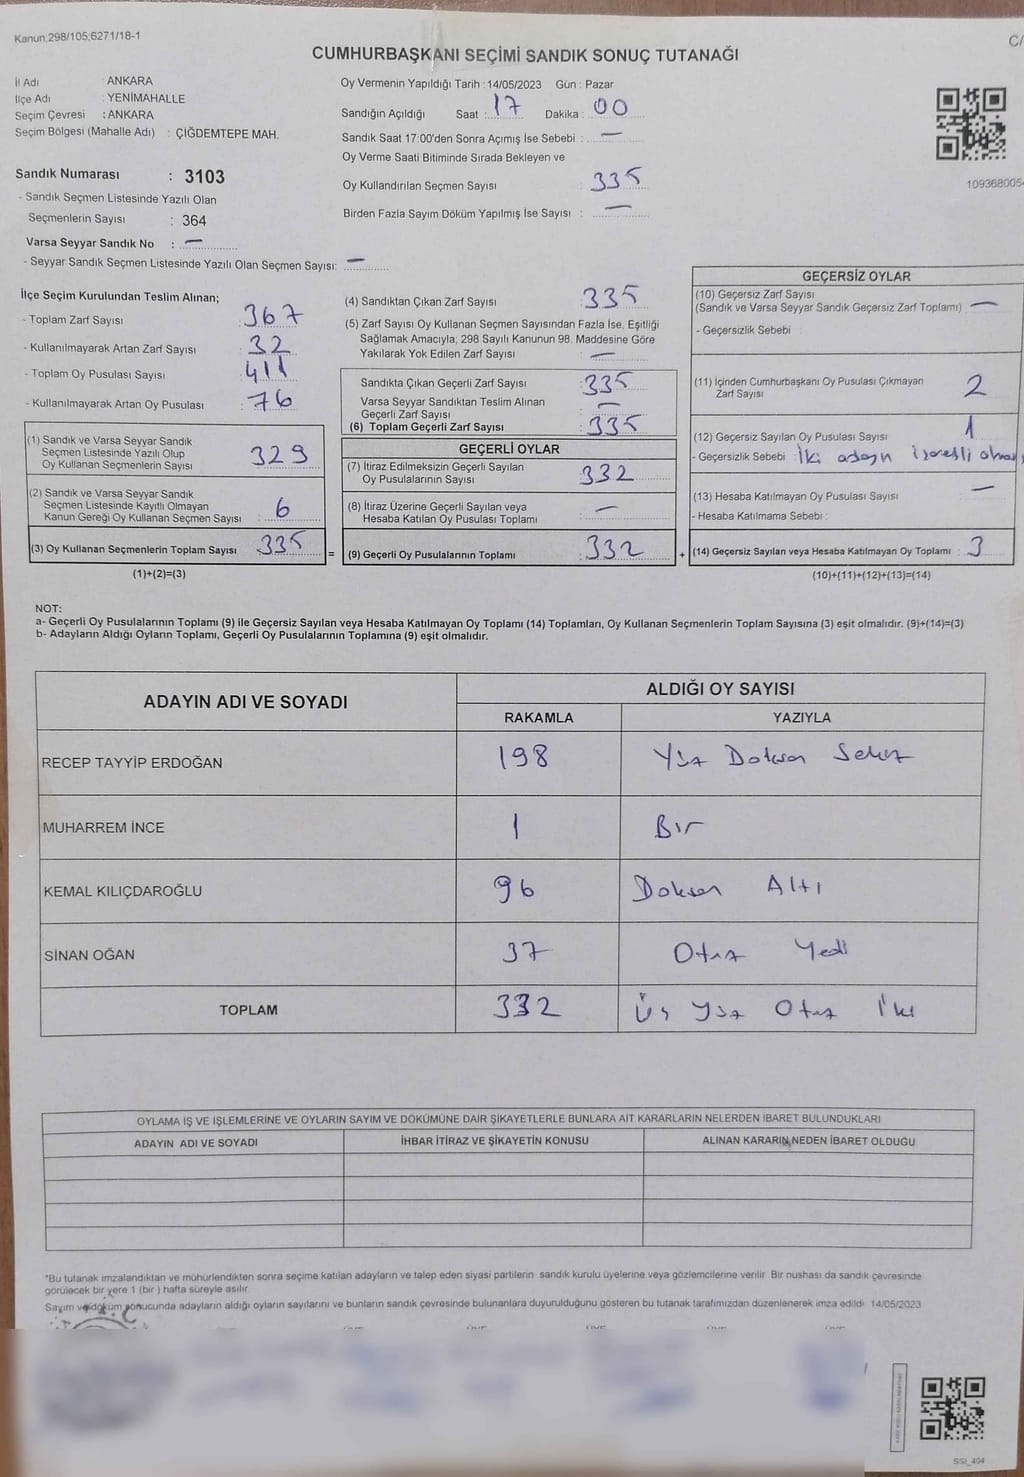 Kanun:298/105;6271/18-1
C/
CUMHURBAŞKANI SEÇİMİ SANDIK SONUÇ TUTANAĞI
İl Adı : ANKARA
İlçe Adı : YENİMAHALLE
Seçim Çevresi : ANKARA
Seçim Bölgesi (Mahalle Adı) : ÇİĞDEMTEPE MAH.
Sandık Numarası : 3103
- Sandık Seçmen Listesinde Yazılı Olan
Seçmenlerin Sayısı : 364
Varsa Seyyar Sandık No : —
- Seyyar Sandık Seçmen Listesinde Yazılı Olan Seçmen Sayısı: —
Oy Vermenin Yapıldığı Tarih : 14/05/2023 Gün : Pazar
Sandığın Açıldığı Saat : 17 Dakika : 00
Sandık Saat 17:00'den Sonra Açımış İse Sebebi : —
Oy Verme Saati Bitiminde Sırada Bekleyen ve
Oy Kullandırılan Seçmen Sayısı : 335
Birden Fazla Sayım Döküm Yapılmış İse Sayısı : —
109368005
İlçe Seçim Kurulundan Teslim Alınan;
- Toplam Zarf Sayısı : 367
- Kullanılmayarak Artan Zarf Sayısı : 32
- Toplam Oy Pusulası Sayısı : 411
- Kullanılmayarak Artan Oy Pusulası : 76
(1) Sandık ve Varsa Seyyar Sandık
Seçmen Listesinde Yazılı Olup
Oy Kullanan Seçmenlerin Sayısı : 329
(2) Sandık ve Varsa Seyyar Sandık
Seçmen Listesinde Kayıtlı Olmayan
Kanun Gereği Oy Kullanan Seçmen Sayısı : 6
(3) Oy Kullanan Seçmenlerin Toplam Sayısı : 335
(1)+(2)=(3)
=
(4) Sandıktan Çıkan Zarf Sayısı : 335
(5) Zarf Sayısı Oy Kullanan Seçmen Sayısından Fazla İse, Eşitliği
Sağlamak Amacıyla; 298 Sayılı Kanunun 98. Maddesine Göre
Yakılarak Yok Edilen Zarf Sayısı : —
Sandıkta Çıkan Geçerli Zarf Sayısı : 335
Varsa Seyyar Sandıktan Teslim Alınan
Geçerli Zarf Sayısı : —
(6) Toplam Geçerli Zarf Sayısı : 335
GEÇERLİ OYLAR
(7) İtiraz Edilmeksizin Geçerli Sayılan
Oy Pusulalarının Sayısı : 332
(8) İtiraz Üzerine Geçerli Sayılan veya
Hesaba Katılan Oy Pusulası Toplamı : —
(9) Geçerli Oy Pusulalarının Toplamı : 332
+
GEÇERSİZ OYLAR
(10) Geçersiz Zarf Sayısı
(Sandık ve Varsa Seyyar Sandık Geçersiz Zarf Toplamı) : —
- Geçersizlik Sebebi :
(11) İçinden Cumhurbaşkanı Oy Pusulası Çıkmayan
Zarf Sayısı : 2
(12) Geçersiz Sayılan Oy Pusulası Sayısı : 1
- Geçersizlik Sebebi : İki adayın işaretli
(13) Hesaba Katılmayan Oy Pusulası Sayısı : —
- Hesaba Katılmama Sebebi :
(14) Geçersiz Sayılan veya Hesaba Katılmayan Oy Toplamı : 3
(10)+(11)+(12)+(13)=(14)
NOT:
a- Geçerli Oy Pusulalarının Toplamı (9) ile Geçersiz Sayılan veya Hesaba Katılmayan Oy Toplamı (14) Toplamları, Oy Kullanan Seçmenlerin Toplam Sayısına (3) eşit olmalıdır. (9)+(14)=(3)
b- Adayların Aldığı Oyların Toplamı, Geçerli Oy Pusulalarının Toplamına (9) eşit olmalıdır.
ADAYIN ADI VE SOYADI
ALDIĞI OY SAYISI
RAKAMLA YAZIYLA
RECEP TAYYİP ERDOĞAN 198 Yüz Doksan Sekiz
MUHARREM İNCE 1 Bir
KEMAL KILIÇDAROĞLU 96 Doksan Altı
SİNAN OĞAN 37 Otuz Yedi
TOPLAM 332 Üç Yüz Otuz İki
OYLAMA İŞ VE İŞLEMLERİNE VE OYLARIN SAYIM VE DÖKÜMÜNE DAİR ŞİKAYETLERLE BUNLARA AİT KARARLARIN NELERDEN İBARET BULUNDUKLARI
ADAYIN ADI VE SOYADI İHBAR İTİRAZ VE ŞİKAYETİN KONUSU ALINAN KARARIN NEDEN İBARET OLDUĞU
*Bu tutanak imzalandıktan ve mühürlendikten sonra seçime katılan adayların ve talep eden siyasi partilerin sandık kurulu üyelerine veya gözlemcilerine verilir. Bir nushası da sandık çevresinde
görülecek bir yere 1 (bir ) hafta süreyle asılır.
Sayım ve döküm sonucunda adayların aldığı oyların sayılarını ve bunların sandık çevresinde bulunanlara duyurulduğunu gösteren bu tutanak tarafımızdan düzenlenerek imza edildi. 14/05/2023
SSI_404